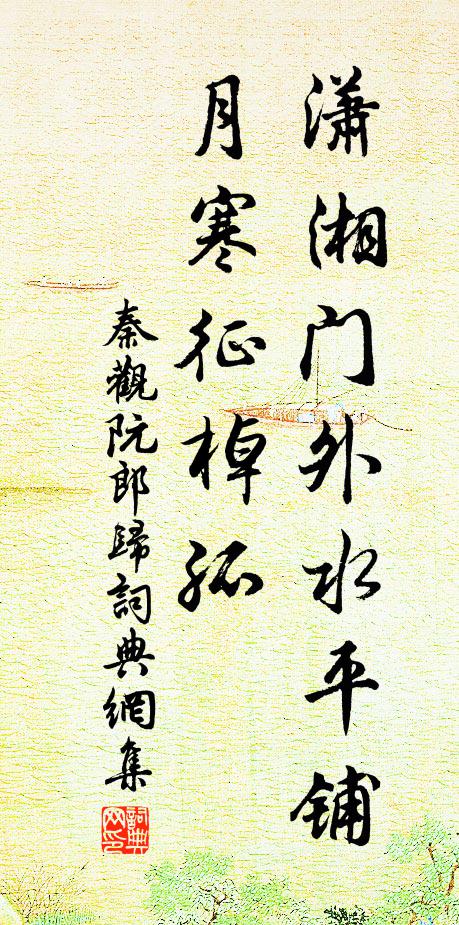 潇湘门外水平铺
月寒征棹孤
秦觀阮郎歸詞典網集
詞典网印